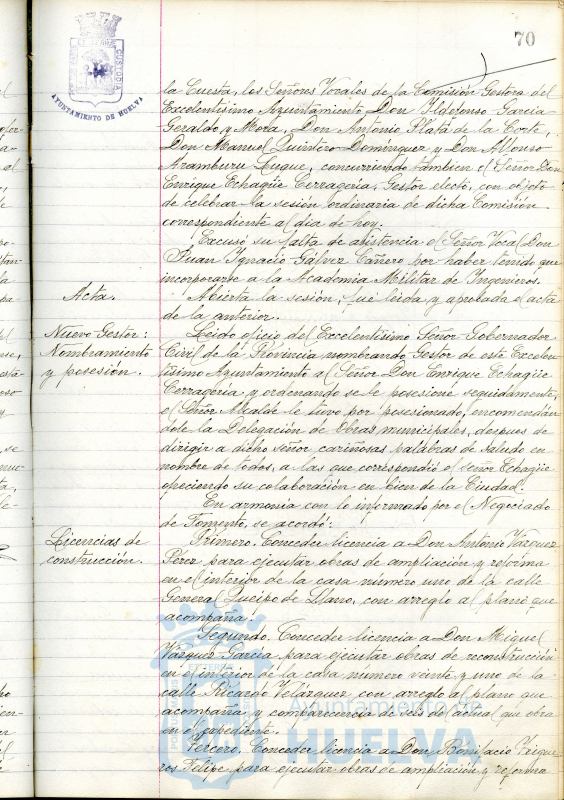 70
AYUNTAMIENTO DE HUELVA
la Cuesta, los Señores Vocales de la Comisión Gestora del
Excelentísimo Ayuntamiento, Don Ildefonso García
Geraldo y Mora, Don Antonio Plata de la Corte,
Don Manuel Quintero Domínguez y Don Alfonso
Aramburu Luque, concurriendo tambien el Señor Don
Enrique Echagüe Cerragería, Gestor electo, con objeto
de celebrar la sesión ordinaria de dicha Comisión
correspondiente al dia de hoy.
Excusó su falta de asistencia el Señor Vocal Don
Juan Ignacio Gálvez Cañero por haber tenido que
incorporarse a la Academia Militar de Ingenieros.
Acta.
Abierta la sesión, fué leida y aprobada el acta
de la anterior.
Nuevo Gestor:
Nombramiento
y posesión.
Leido oficio del Excelentísimo Señor Gobernador
Civil de la Provincia nombrando Gestor de este Excelen
tísimo Ayuntamiento al Señor Don Enrique Echagüe
Cerragería y ordenando se le posesione seguidamente,
el Señor Alcalde le tuvo por posesionado, encomendán
dole la Delegación de Obras municipales, despues de
dirigir a dicho señor cariñosas palabras de saludo en
nombre de todos, a las que correspondió el Señor Echagüe
ofreciendo su colaboración en bien de la Ciudad.
En armonía con lo informado por el Negociado
de Fomento, se acordó:
Licencias de
construcción.
Primero. Conceder licencia a Don Antonio Vázquez
Pérez para ejecutar obras de ampliación y reforma
en el interior de la casa número uno de la calle
General Queipo de Llano, con arreglo al plano que
acompaña.
Segundo. Conceder licencia a Don Miguel
Vázquez García para ejecutar obras de reconstrucción
en el interior de la casa número veinte y uno de la
calle Ricardo Velázquez, con arreglo al plano que
acompaña y comparecencia de seis del actual que obra
en el expediente.
Tercero. Conceder licencia a Don Bonifacio Trigue
ros Felipe para ejecutar obras de ampliación y reforma
Ayuntamiento de
HUELVA